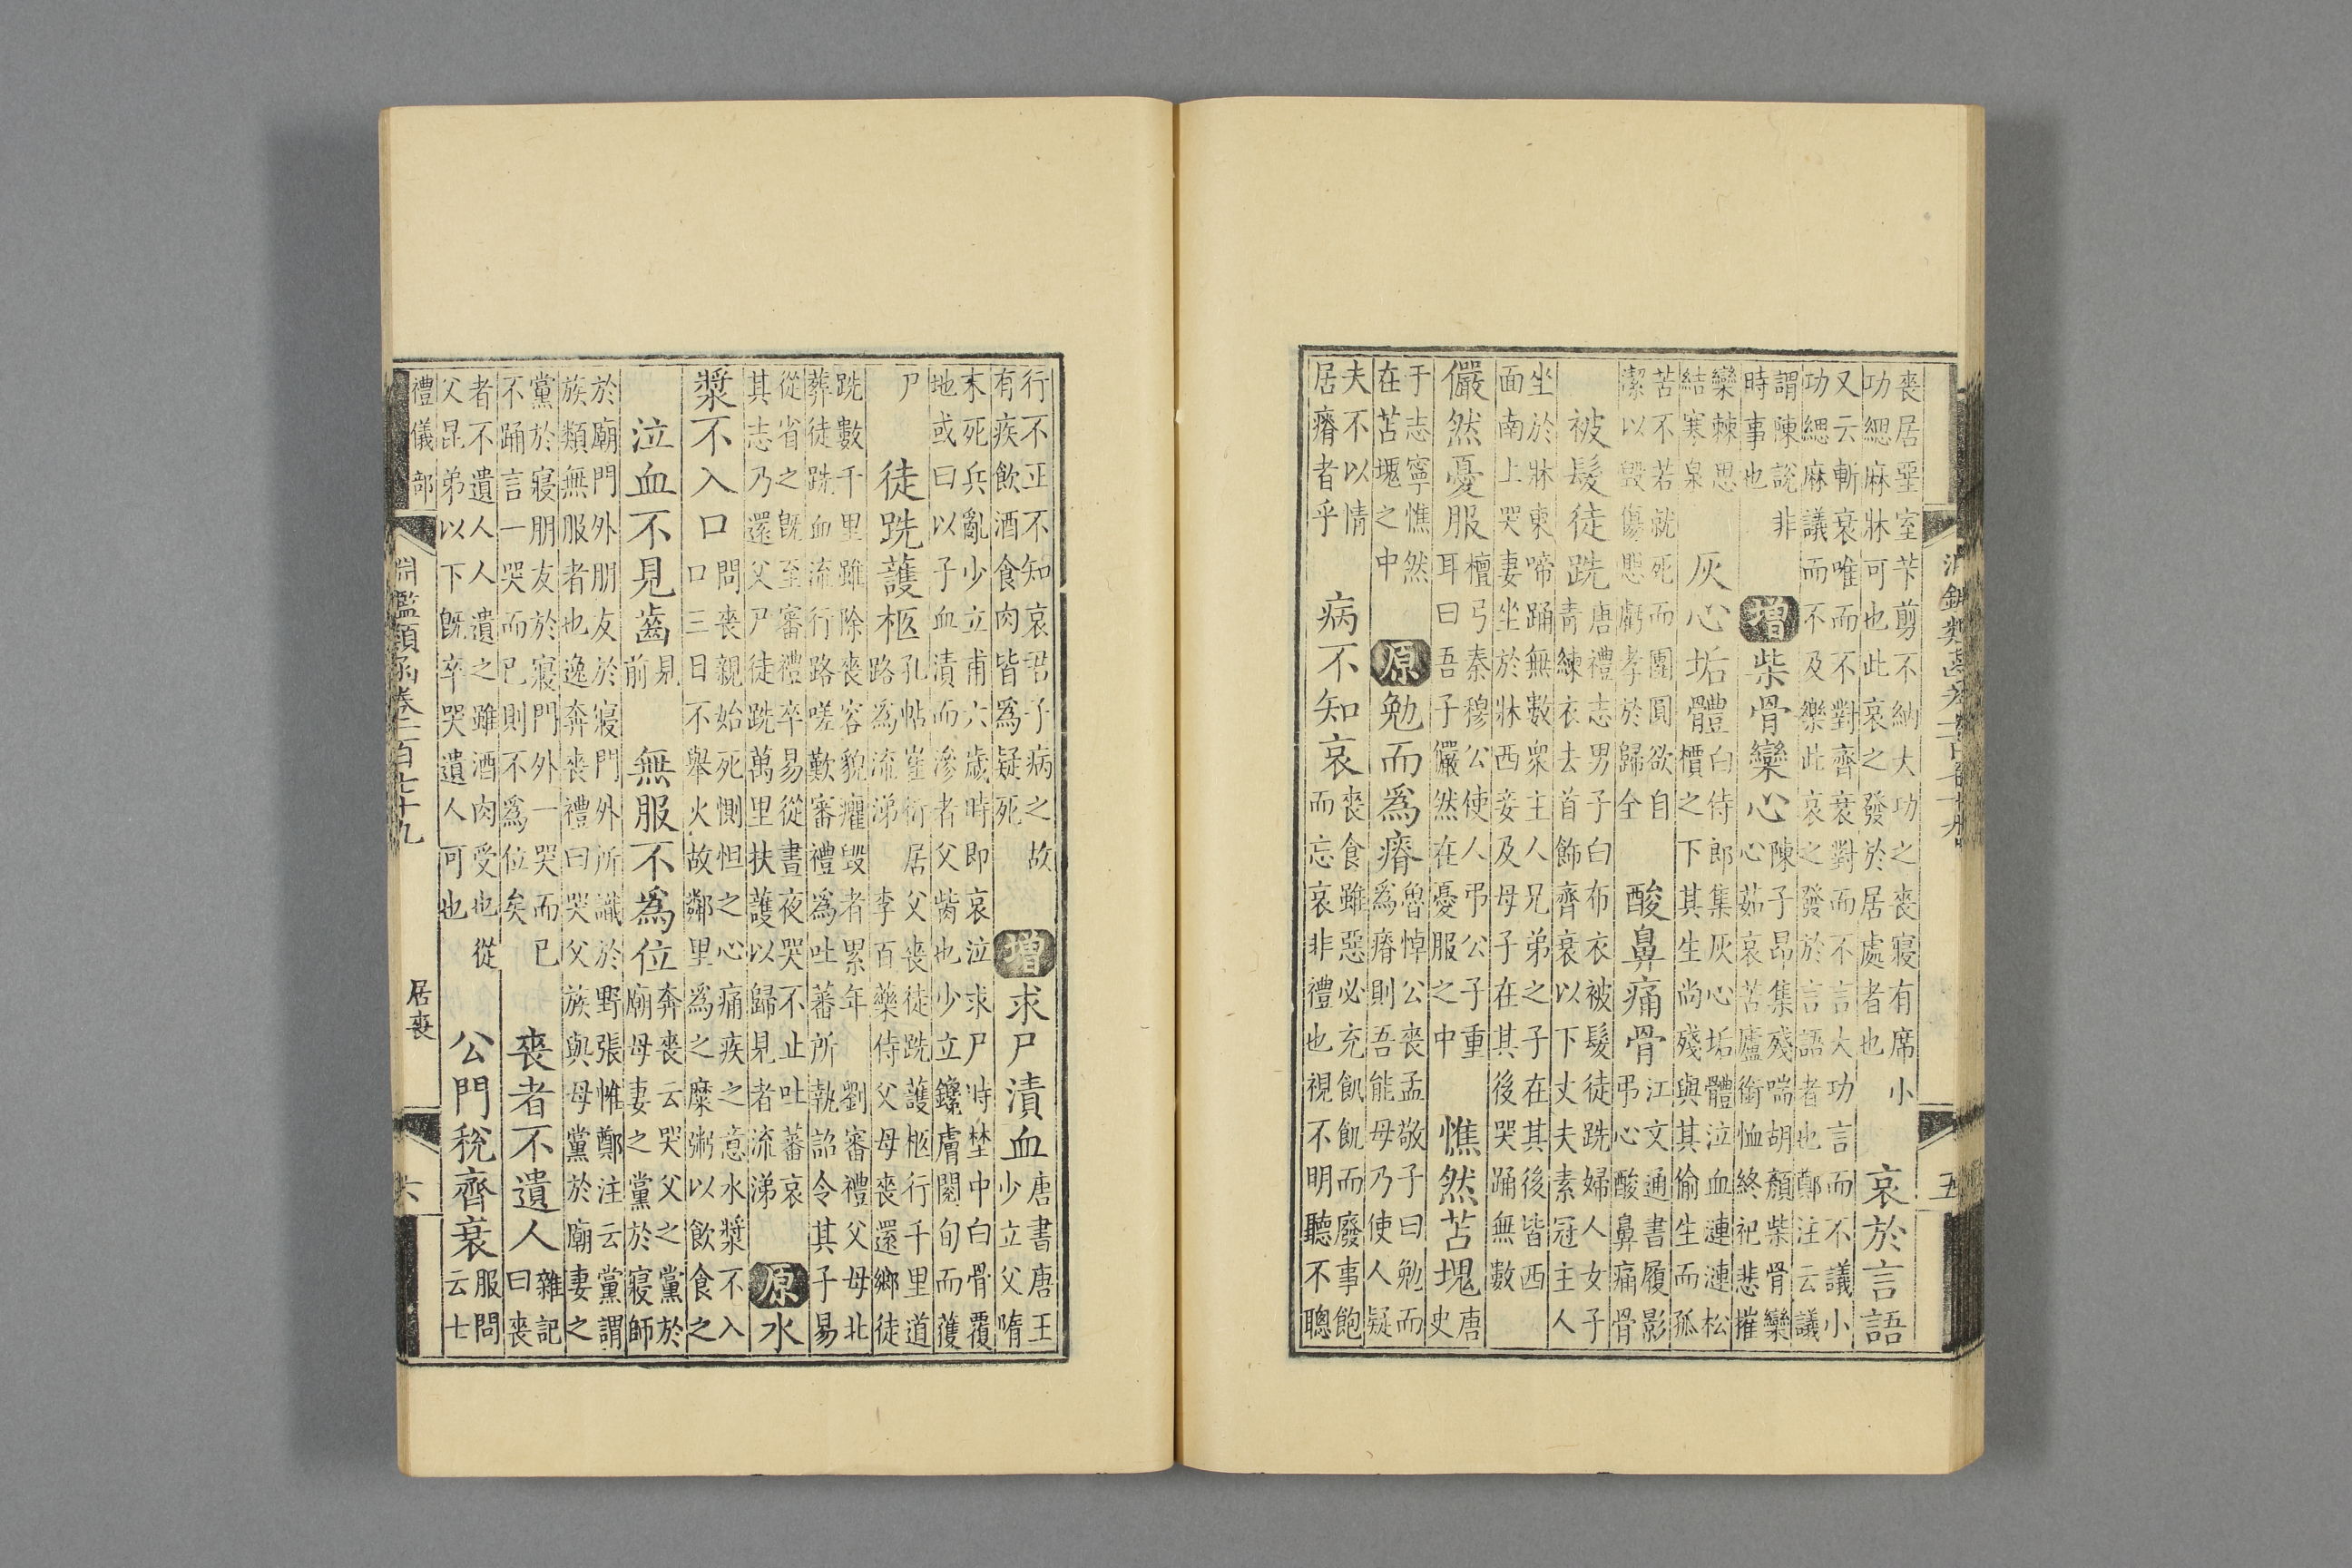 五
喪居堊室苄剪不納大功之喪寢有席小
功緦麻牀可也此哀之發於居處者也
哀於言語
又云斬衰唯而不對齊衰對而不言大功言而不議小
功緦麻議而不及樂此哀之發於言語者也鄭注云議
謂陳說非
時事也
增柴骨欒心
陳子昂集殘喘胡顏柴骨欒
心茹哀苦廬銜恤終祀悲摧
欒棘思
結寒泉
灰心垢體
白侍郎集灰心垢體泣血漣漣松
檟之下其生尚殘與其偷生而孤
苦不若就死而團圓欲自
潔以毀傷愳虧孝於歸全
酸鼻痛骨
江文通書履影
弔心酸鼻痛骨
被髮徒跣
唐禮志男子白布衣被髮徒跣婦人女子
青練衣去首飾齊衰以下丈夫素冠主人
坐於牀東啼踊無數衆主人兄弟之子在其後皆西
面南上哭妻坐於牀西妾及母子在其後哭踊無數
儼然憂服
檀弓秦穆公使人弔公子重
耳曰吾子儼然在憂服之中
憔然苫塊
唐
史
于志寧憔然
在苫塊之中
原勉而爲瘠
魯悼公喪孟敬子曰勉而
爲瘠則吾能毋乃使人疑
夫不以情
居瘠者乎
病不知哀
喪食雖惡必充飢飢而廢事飽
而忘哀非禮也視不明聽不聰
行不正不知哀君子病之故
有疾飲酒食肉皆爲疑死
增求尸漬血
唐書唐王
少立父隋
末死兵亂少立甫六歲時即哀泣求尸時埜中白骨覆
地或曰以子血漬而滲者父胔也少立鑱膚閱旬而獲
尸
徒跣護柩
孔帖崔衍居父喪徒跣護柩行千里道
路為流涕 李百藥侍父母喪還鄉徒
跣數千里雖除喪容貌癯毀者累年 劉審禮父母北
葬徒跣血流行路嗟歎審禮爲吐蕃所執詔令其子易
從省之既至審禮卒易從晝夜哭不止吐蕃哀
其志乃還父尸徒跣萬里扶護以歸見者流涕
原水
漿不入口
問喪親始死惻怛之心痛疾之意水漿不入
口三日不舉火故鄰里爲之糜粥以飲食之
泣血不見齒
見
前
無服不爲位
奔喪云哭父之黨於
廟母妻之黨於寢師
於廟門外朋友於寢門外所識於野張帷鄭注云黨謂
族類無服者也逸奔喪禮曰哭父族與母黨於廟妻之
黨於寢朋友於寢門外一哭而已
不踊言一哭而已則不爲位矣
喪者不遺人
雜記
曰喪
者不遺人人遺之雖酒肉受也從
父昆弟以下既卒哭遺人可也
公門稅齊衰
服問
云士
禮儀部
淵鑑類函卷二百七十九
居喪
六